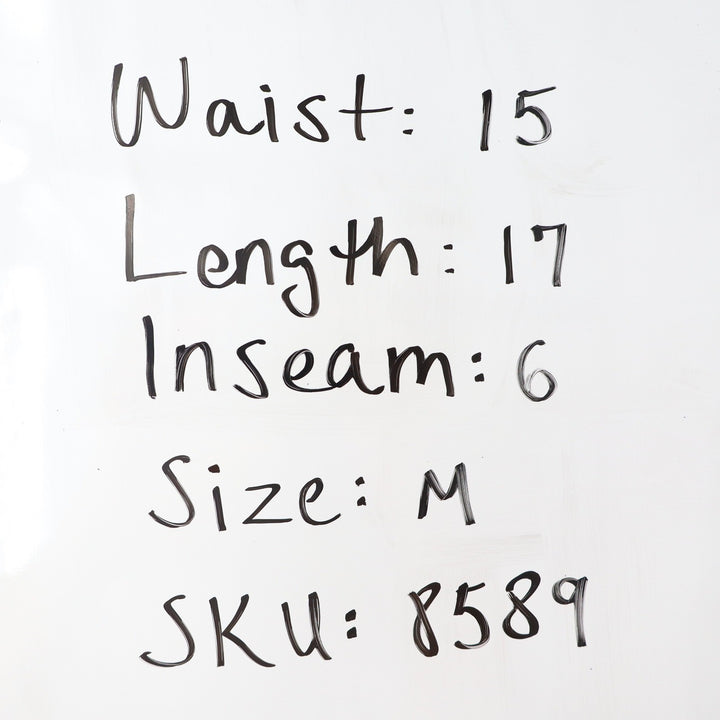 Waist: 15
Length: 17
Inseam: 6
Size: M
SKU: 8589